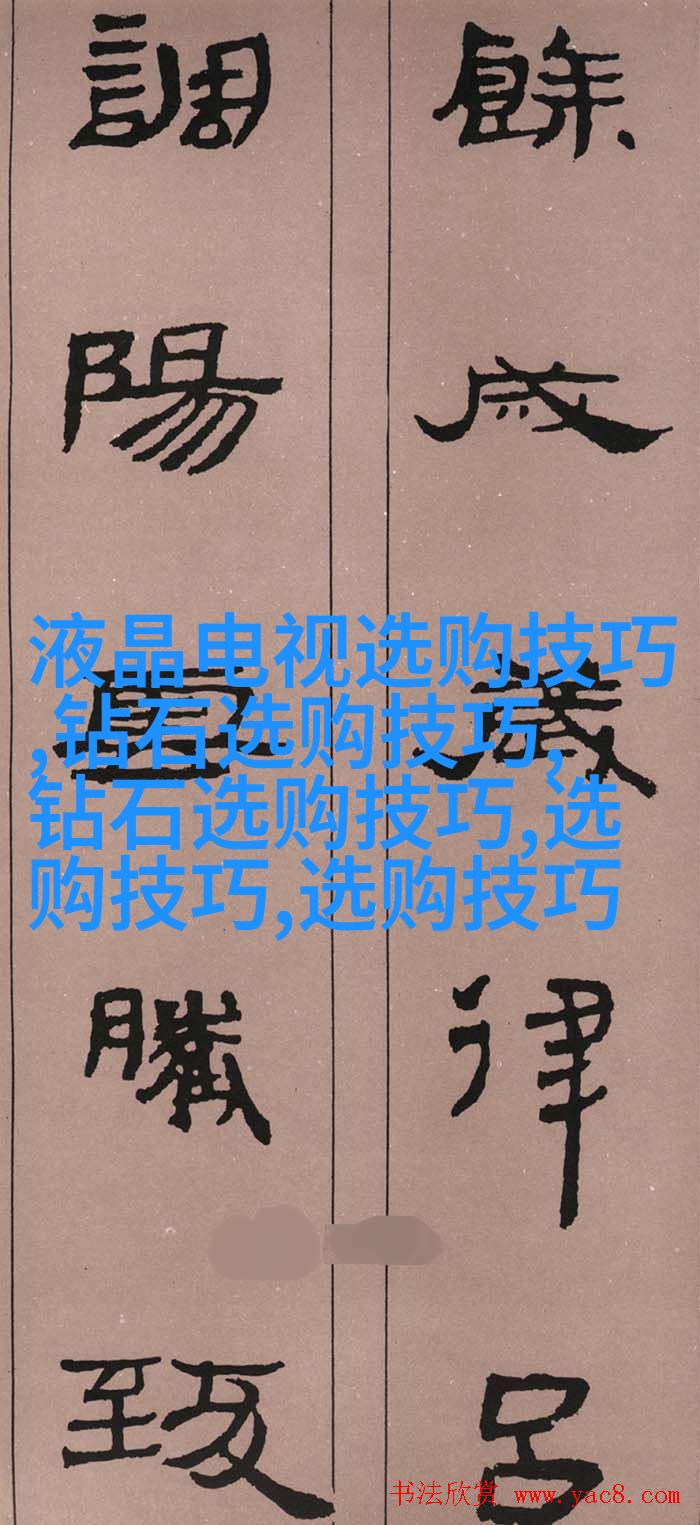 餘成歲律呂
調陽雲騰致
液晶电视选购技巧
,钻石选购技巧,
钻石选购技巧,选
购技巧,选购技巧
书法欣赏 www.yac8.com